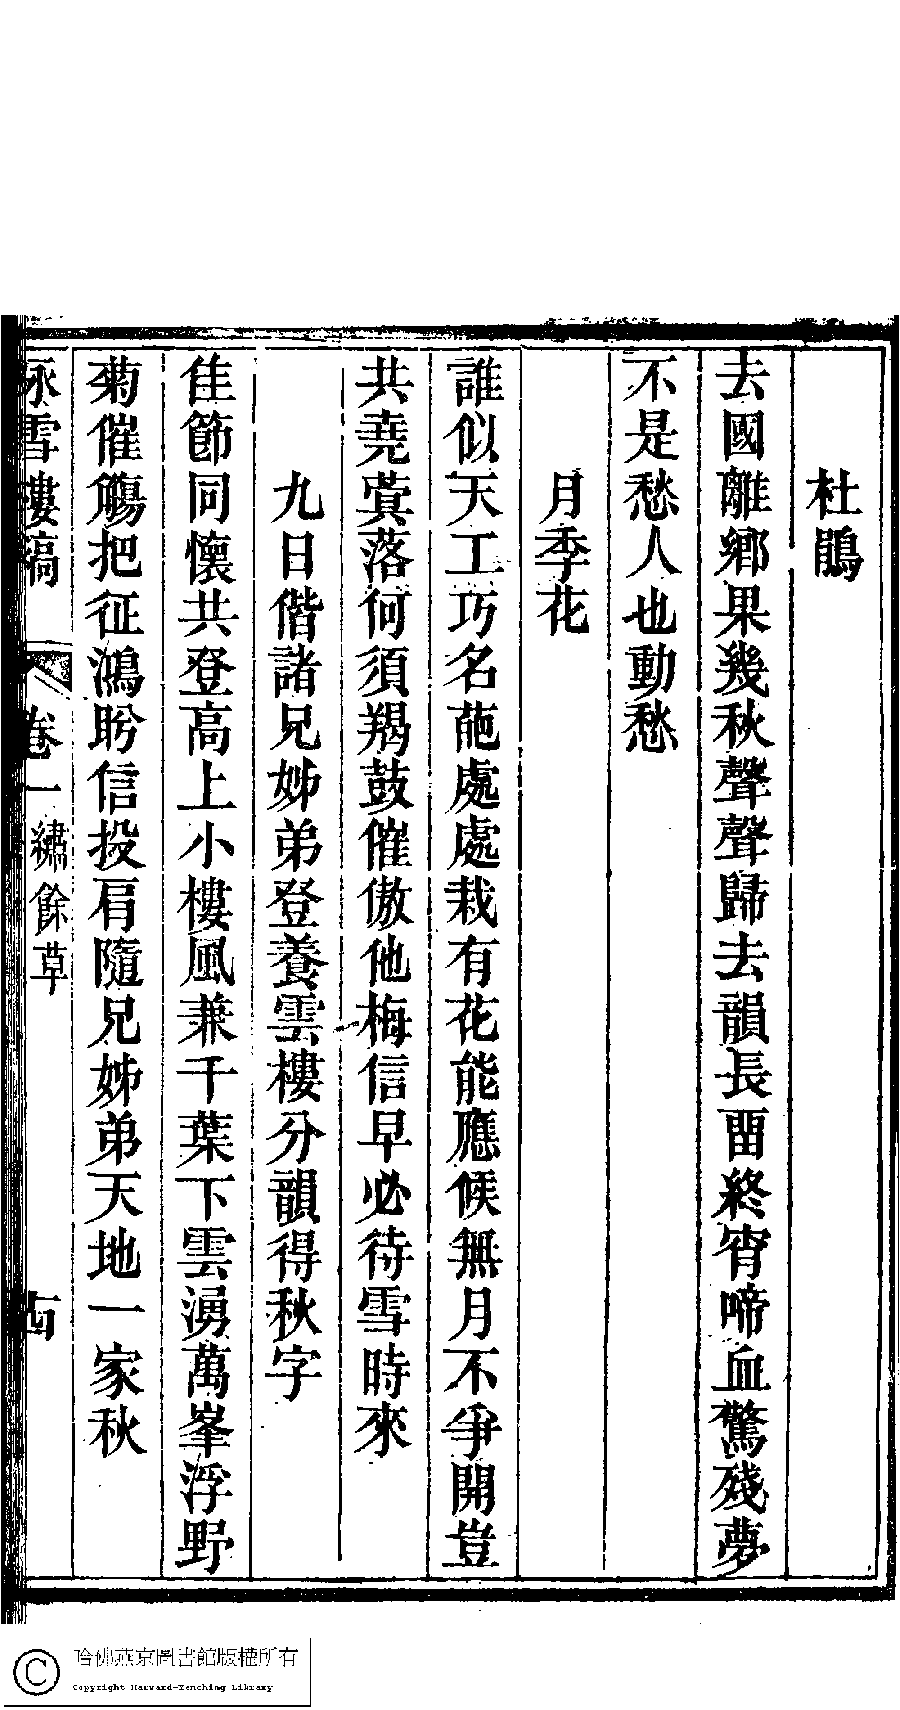 杜鵑
去國離鄉果幾秋聲聲歸去韻長畱終宵啼血驚殘夢
不是愁人也動愁
月季花
誰似天工巧名葩處處栽有花能應候無月不爭開豈
共堯蓂落何須羯鼓催傲他梅信早必待雪時來
九日偕諸兄姊弟登養雲樓分韻得秋字
佳節同懷共登高上小樓風兼千葉下雲湧萬峯浮野
菊催觴把征鴻盻信投肩隨兄姊弟天地一家秋
詠雪樓稿 卷一 繡餘草 古
哈佛燕京圖書館版權所有
Copyright Harvard-Yenching Library